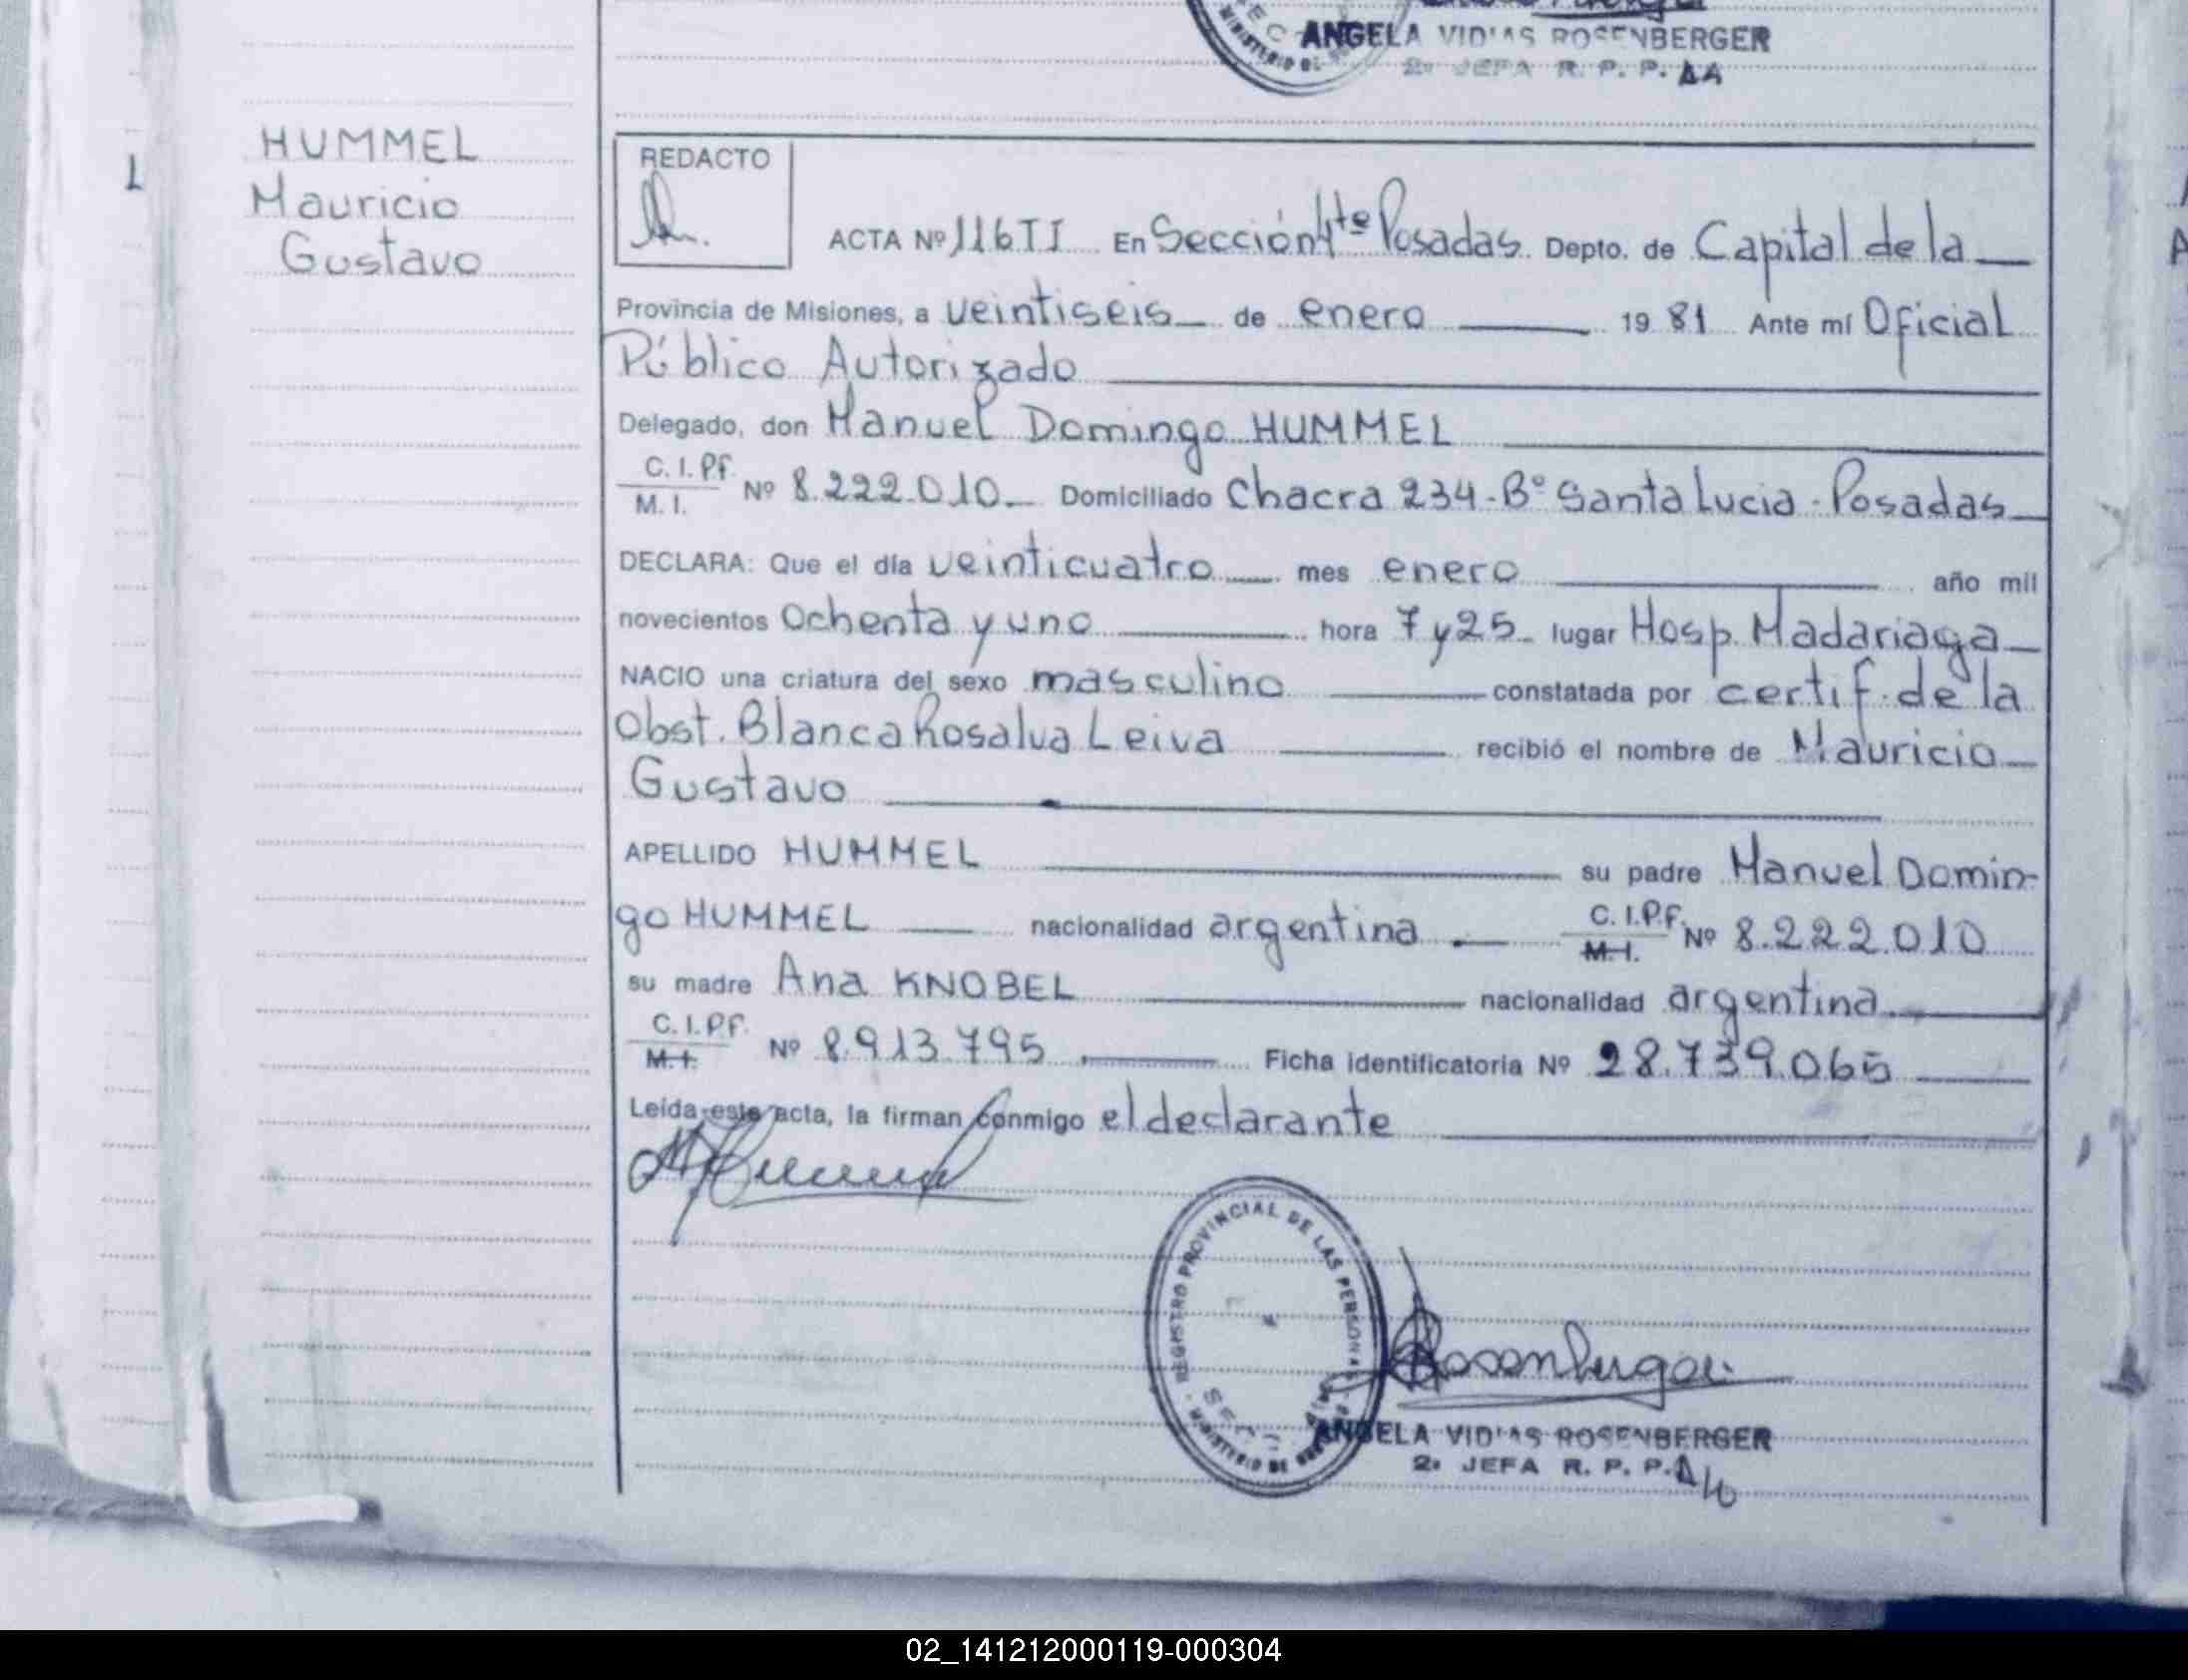 ANGELA VIDIAS ROSENBERGER
2a JEFA R. P. P.
HUMMEL
Mauricio
Gustavo
REDACTO
ACTA Nº 116 TI En Sección 4ta Posadas Depto. de Capital de la
Provincia de Misiones, a veintiseis de enero 19 81 Ante mí Oficial
Público Autorizado
Delegado, don Manuel Domingo HUMMEL
C.I.P.F.
M.I. Nº 8.222.010 Domiciliado Chacra 234-Bº Santa Lucia-Posadas
DECLARA: Que el día veinticuatro mes enero año mil
novecientos Ochenta y uno hora 7 y 25 lugar Hosp. Madariaga
NACIO una criatura del sexo masculino constatada por certif. de la
Obst. Blanca Rosalva Leiva recibió el nombre de Mauricio
Gustavo
APELLIDO HUMMEL su padre Manuel Domin-
go HUMMEL nacionalidad argentina C.I.P.F. M.I. Nº 8.222.010
su madre Ana KNOBEL nacionalidad argentina
C.I.P.F.
M.I. Nº 8.913.795 Ficha identificatoria Nº 28.739.065
Leída este acta, la firman conmigo el declarante
REGISTRO PROVINCIAL DE LAS PERSONAS
MINISTERIO DE
Rosenberger
ANGELA VIDIAS ROSENBERGER
2a JEFA R. P. P.
02_141212000119-000304